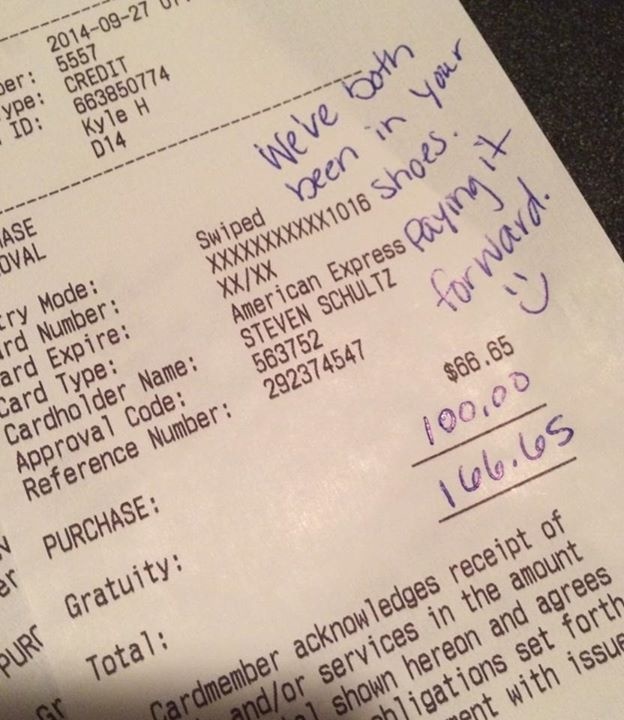 2014-09-27
ber: 5557
ype: CREDIT
ID: 663850774
Kyle H
D14
We've both
been in your
shoes.
Paying it
forward.
:)
ASE
OVAL
try Mode: Swiped
rd Number: XXXXXXXXXXX1016
ard Expire: XX/XX
Card Type: American Express
Cardholder Name: STEVEN SCHULTZ
Approval Code: 563752
Reference Number: 292374547
PURCHASE: $66.65
Gratuity: 100.00
Total: 166.65
Cardmember acknowledges receipt of
and/or services in the amount
shown hereon and agrees
bligations set forth
ent with issue
er
PURC
Gr